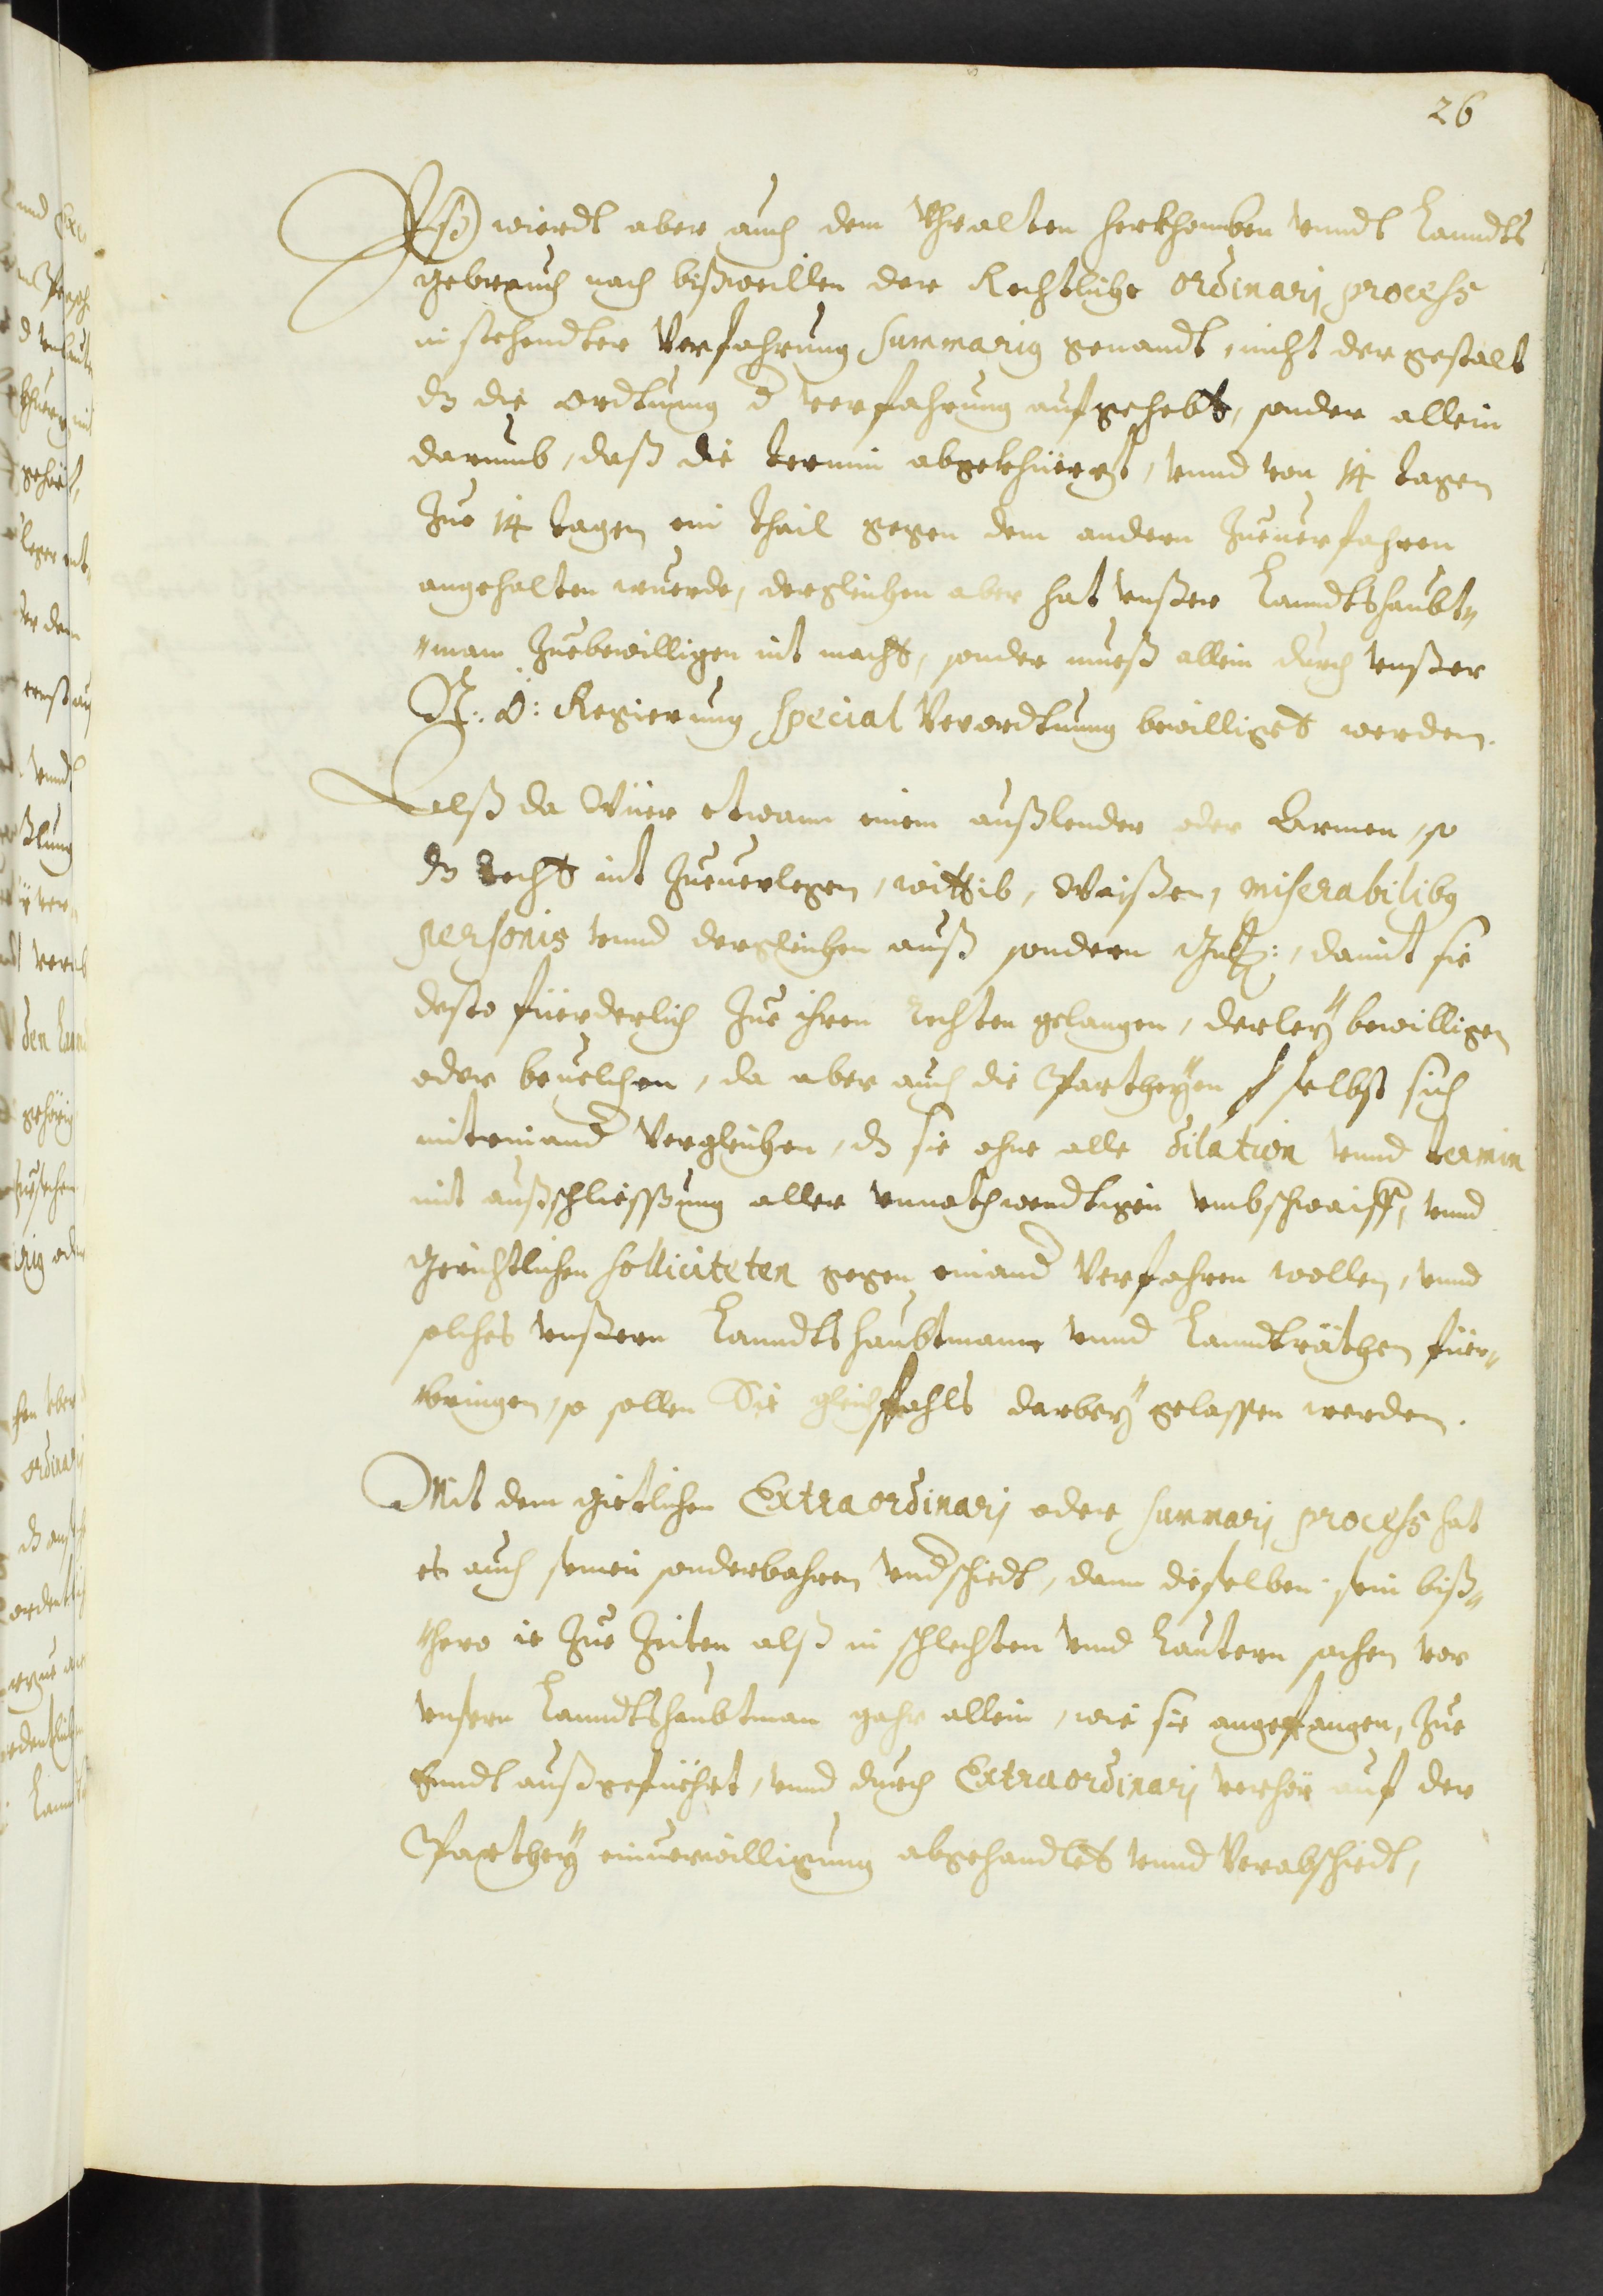 26
Eß wierdt aber auch dem Vhralten herkhomben vnndt Lanndts
gebrauch nach bißweillen der Rechtliche ordinarj process
in stehendter Verfahrung Summarig genandt, nicht dergestalt
dz die ordtnung d verfahrung aufgehebt, sonder allein
darumb, daß die termin abgekhüerzt, vnnd von 14 tagen
Zue 14 tagen ein thail gegen dem andern Zueuerfahren
angehalten wuerde, dergleichen aber hat vnßer Lanndtshaubt„
„mann Zuebewilligen nit macht, sonder mueß allein durch vnßer
N: Ö: Regierung Special Verordtnung bewilliget werden.
Alß da Wüer etwann einem außlender oder Armen, so
dz recht nit Zueuerlegen, wittib, Waißen, miserabilibg
personis vnnd dergleichen auß sondern Gnd:, damit sie
desto füerderlich Zue ihren rechten gelangen, derleÿ bewilligen
oder beuelchen, da aber auch die Partheÿen selbst sich
miteinand Vergleichen, dz sie ohne alle dilation vnnd termin
mit außschliessßung aller vnnothwendtigen vmbschwaiff, vnnd
Gerichtlichen solliciteten gegen einand Verfahren wollen, vnnd
solches vnßern Landtshaubtmann vnnd Lanndträthen füer„
„bringen, so sollen Sie gleichfahls darbeÿ gelassen werden.
Mit dem Gietlichen Extraordinarj oder Summarj process hat
es auch seinen sonderbahren vndschiedt, dann dieselben sein biß„
„hero ie Zue Zeiten alß in schlechten vnnd Lautern sachen vor
vnsern Lanndtshaubtman gahr allein, wie sie angefangen, Zue
Enndt außgefüehrt, vnnd durch Extraordinarj verhör auf der
Partheÿ einuerwilligung abgehandlet vnnd Verabschiedt,